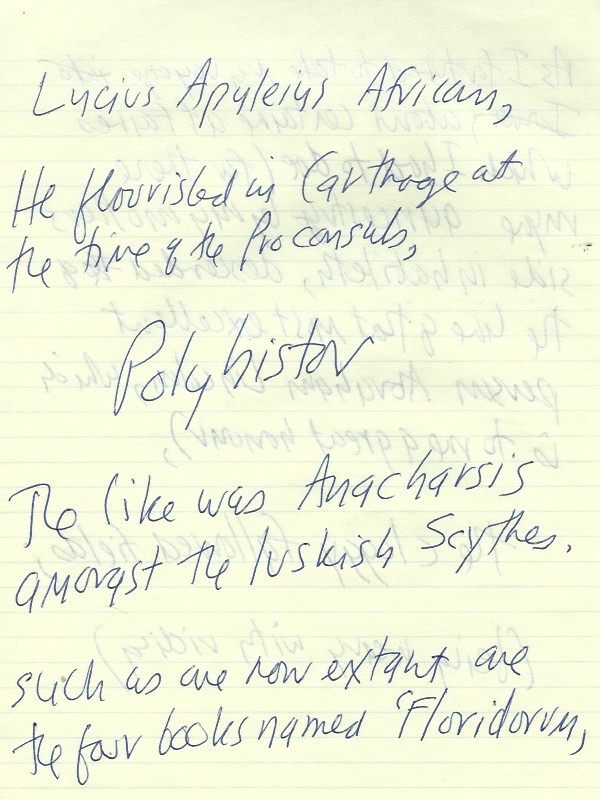 Lucius Apuleius African,
He flourished in Carthage at
the time of the Proconsuls,
Polyhistor
The like was Anacharsis
amongst the luskish Scythes.
such as are now extant are
the four books named "Floridorum,